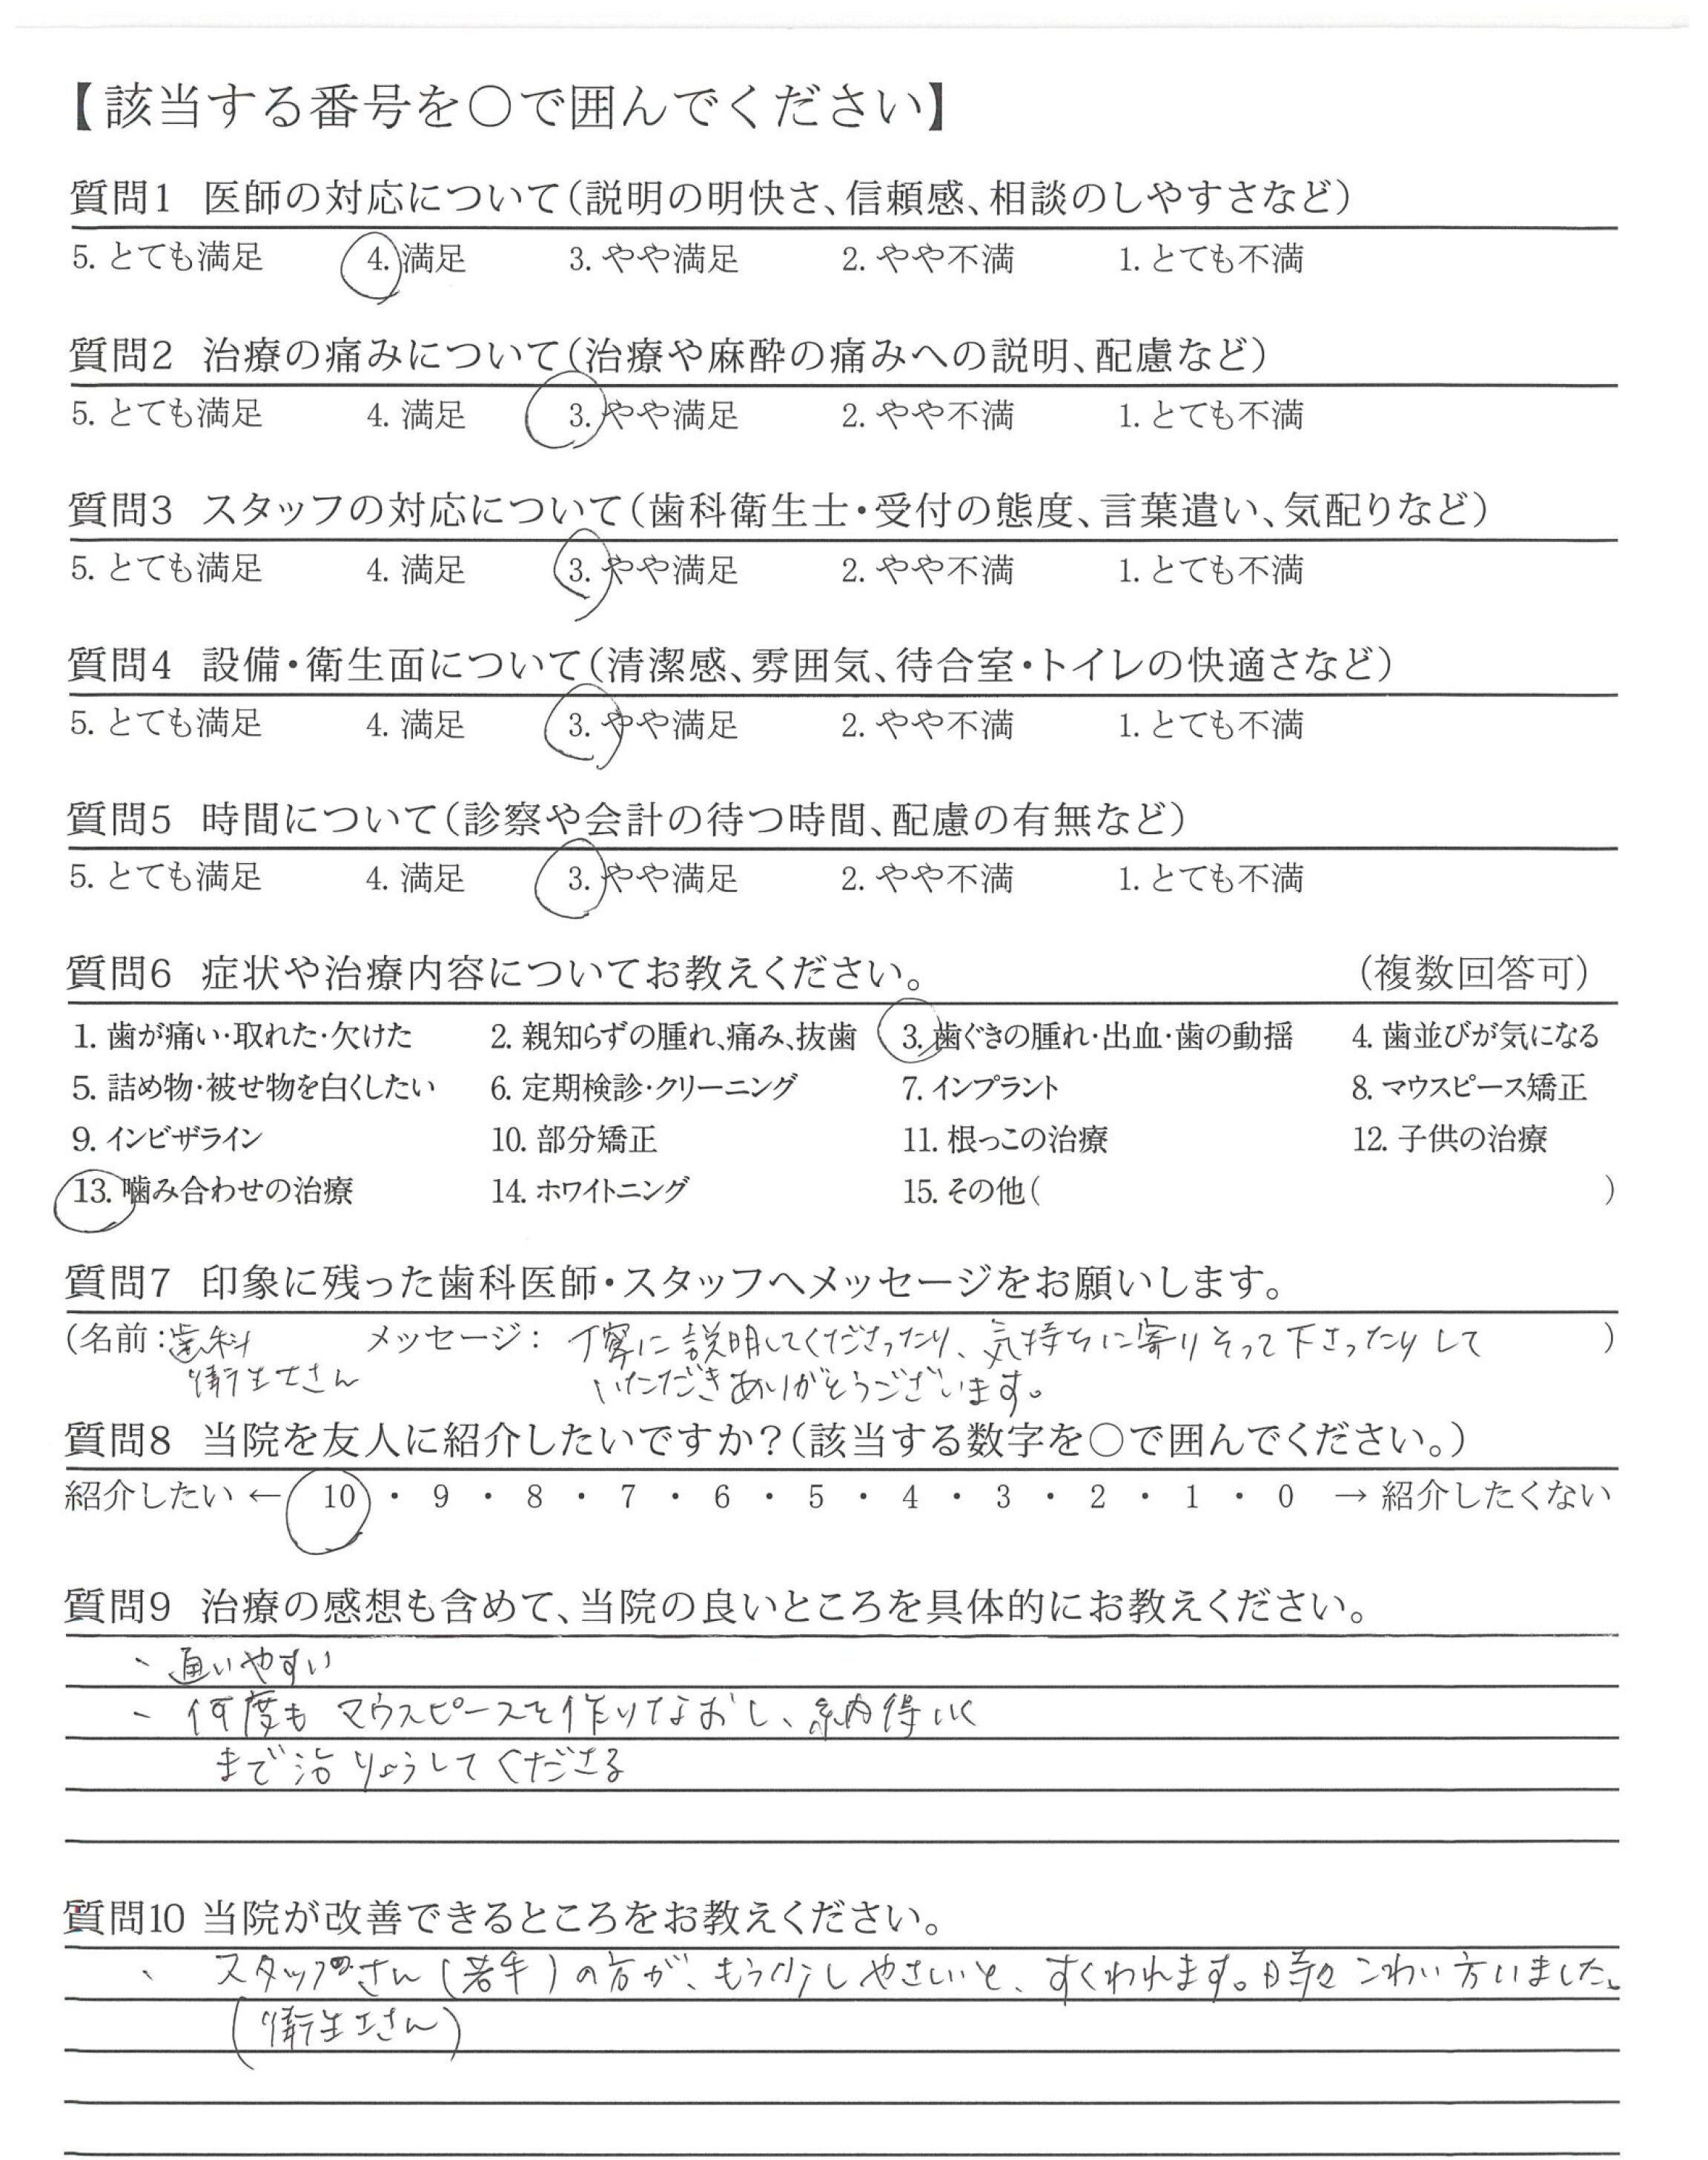 【該当する番号を○で囲んでください】
質問1 医師の対応について(説明の明快さ、信頼感、相談のしやすさなど)
5. とても満足 4. 満足 3. やや満足 2. やや不満 1. とても不満
質問2 治療の痛みについて(治療や麻酔の痛みへの説明、配慮など)
5. とても満足 4. 満足 3. やや満足 2. やや不満 1. とても不満
質問3 スタッフの対応について(歯科衛生士・受付の態度、言葉遣い、気配りなど)
5. とても満足 4. 満足 3. やや満足 2. やや不満 1. とても不満
質問4 設備・衛生面について(清潔感、雰囲気、待合室・トイレの快適さなど)
5. とても満足 4. 満足 3. やや満足 2. やや不満 1. とても不満
質問5 時間について(診察や会計の待つ時間、配慮の有無など)
5. とても満足 4. 満足 3. やや満足 2. やや不満 1. とても不満
質問6 症状や治療内容についてお教えください。 (複数回答可)
1. 歯が痛い・取れた・欠けた 2. 親知らずの腫れ、痛み、抜歯 3. 歯ぐきの腫れ・出血・歯の動揺 4. 歯並びが気になる
5. 詰め物・被せ物を白くしたい 6. 定期検診・クリーニング 7. インプラント 8. マウスピース矯正
9. インビザライン 10. 部分矯正 11. 根っこの治療 12. 子供の治療
13. 噛み合わせの治療 14. ホワイトニング 15. その他( )
質問7 印象に残った歯科医師・スタッフへメッセージをお願いします。
(名前:歯科 メッセージ: 丁寧に説明してくださったり、気持ちに寄りそって下さったりして )
衛生士さん いただきありがとうございます。
質問8 当院を友人に紹介したいですか?(該当する数字を○で囲んでください。)
紹介したい ← 10 ・ 9 ・ 8 ・ 7 ・ 6 ・ 5 ・ 4 ・ 3 ・ 2 ・ 1 ・ 0 → 紹介したくない
質問9 治療の感想も含めて、当院の良いところを具体的にお教えください。
、通いやすい
、何度も マウスピースを作りなおし、納得いく
まで治りょうしてくださる
質問10 当院が改善できるところをお教えください。
、 スタッフさん(若手)の方が、もう少しやさしいと、すくわれます。時々こわい方いました。
(衛生士さん)